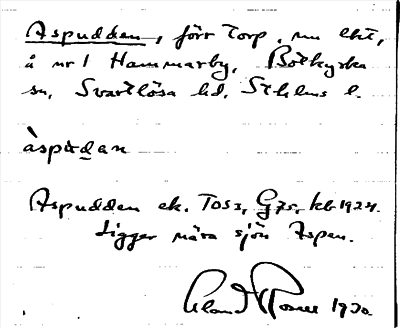 Aspudden, förr torp, nu lht,
å nr 1 Hammarby, Botkyrka
sn, Svartlösa hd, Sthlms l.
àspùdan
Aspudden ek. T053, G75, kb 1924.
Ligger nära sjön Aspen.
1930